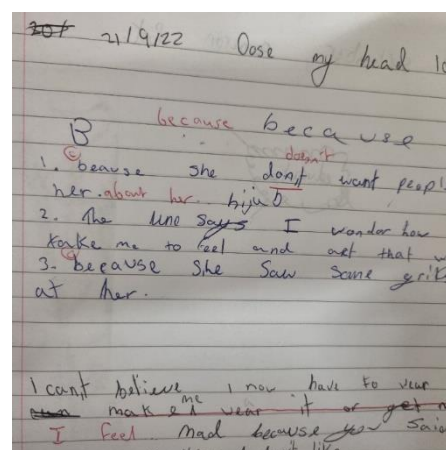 21/9/22 Dose my head
because because
B
1. beause she don't doesn't want peopl
her. about her. hijub
2. The line says I wonder how
take me to feel and act that w
3- because She Saw some
at her.
I can't believe I now have to wear
make me wear it or get
I feel mad because you said
like